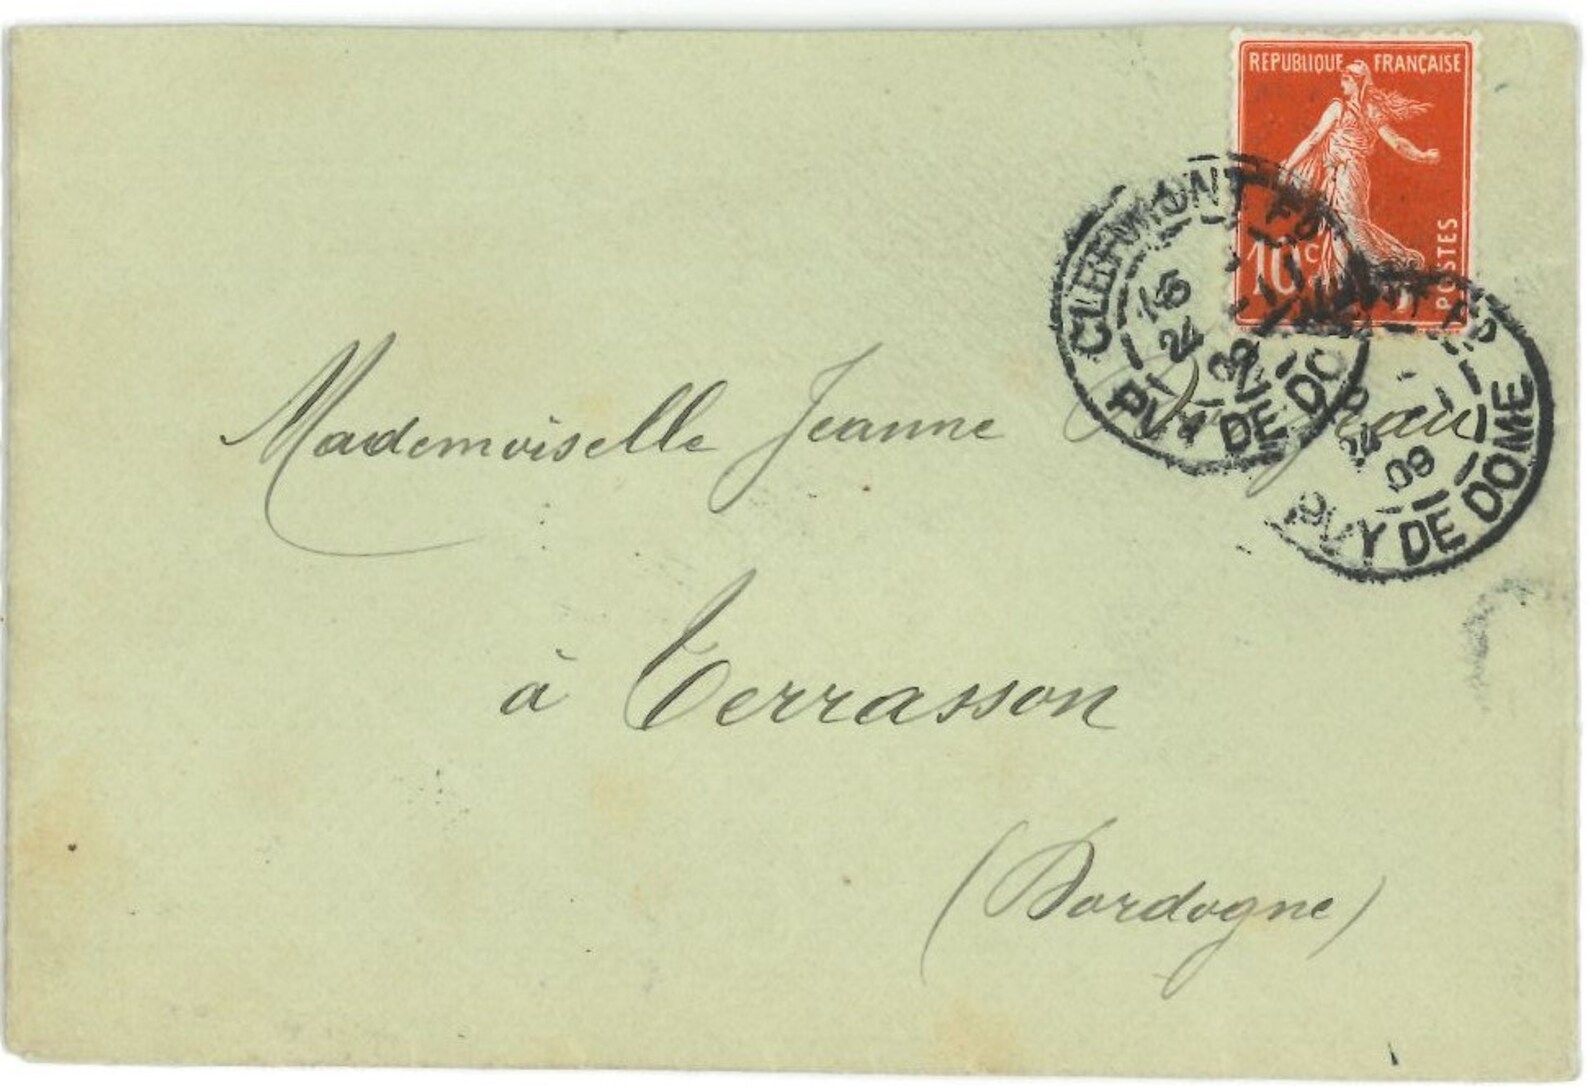 REPUBLIQUE FRANÇAISE
10c
POSTES
CLERMONT FD
15
24
09
PUY DE DO
FD
24
09
PUY DE DOME
Mademoiselle Jeanne
à Terrasson
(Dordogne)